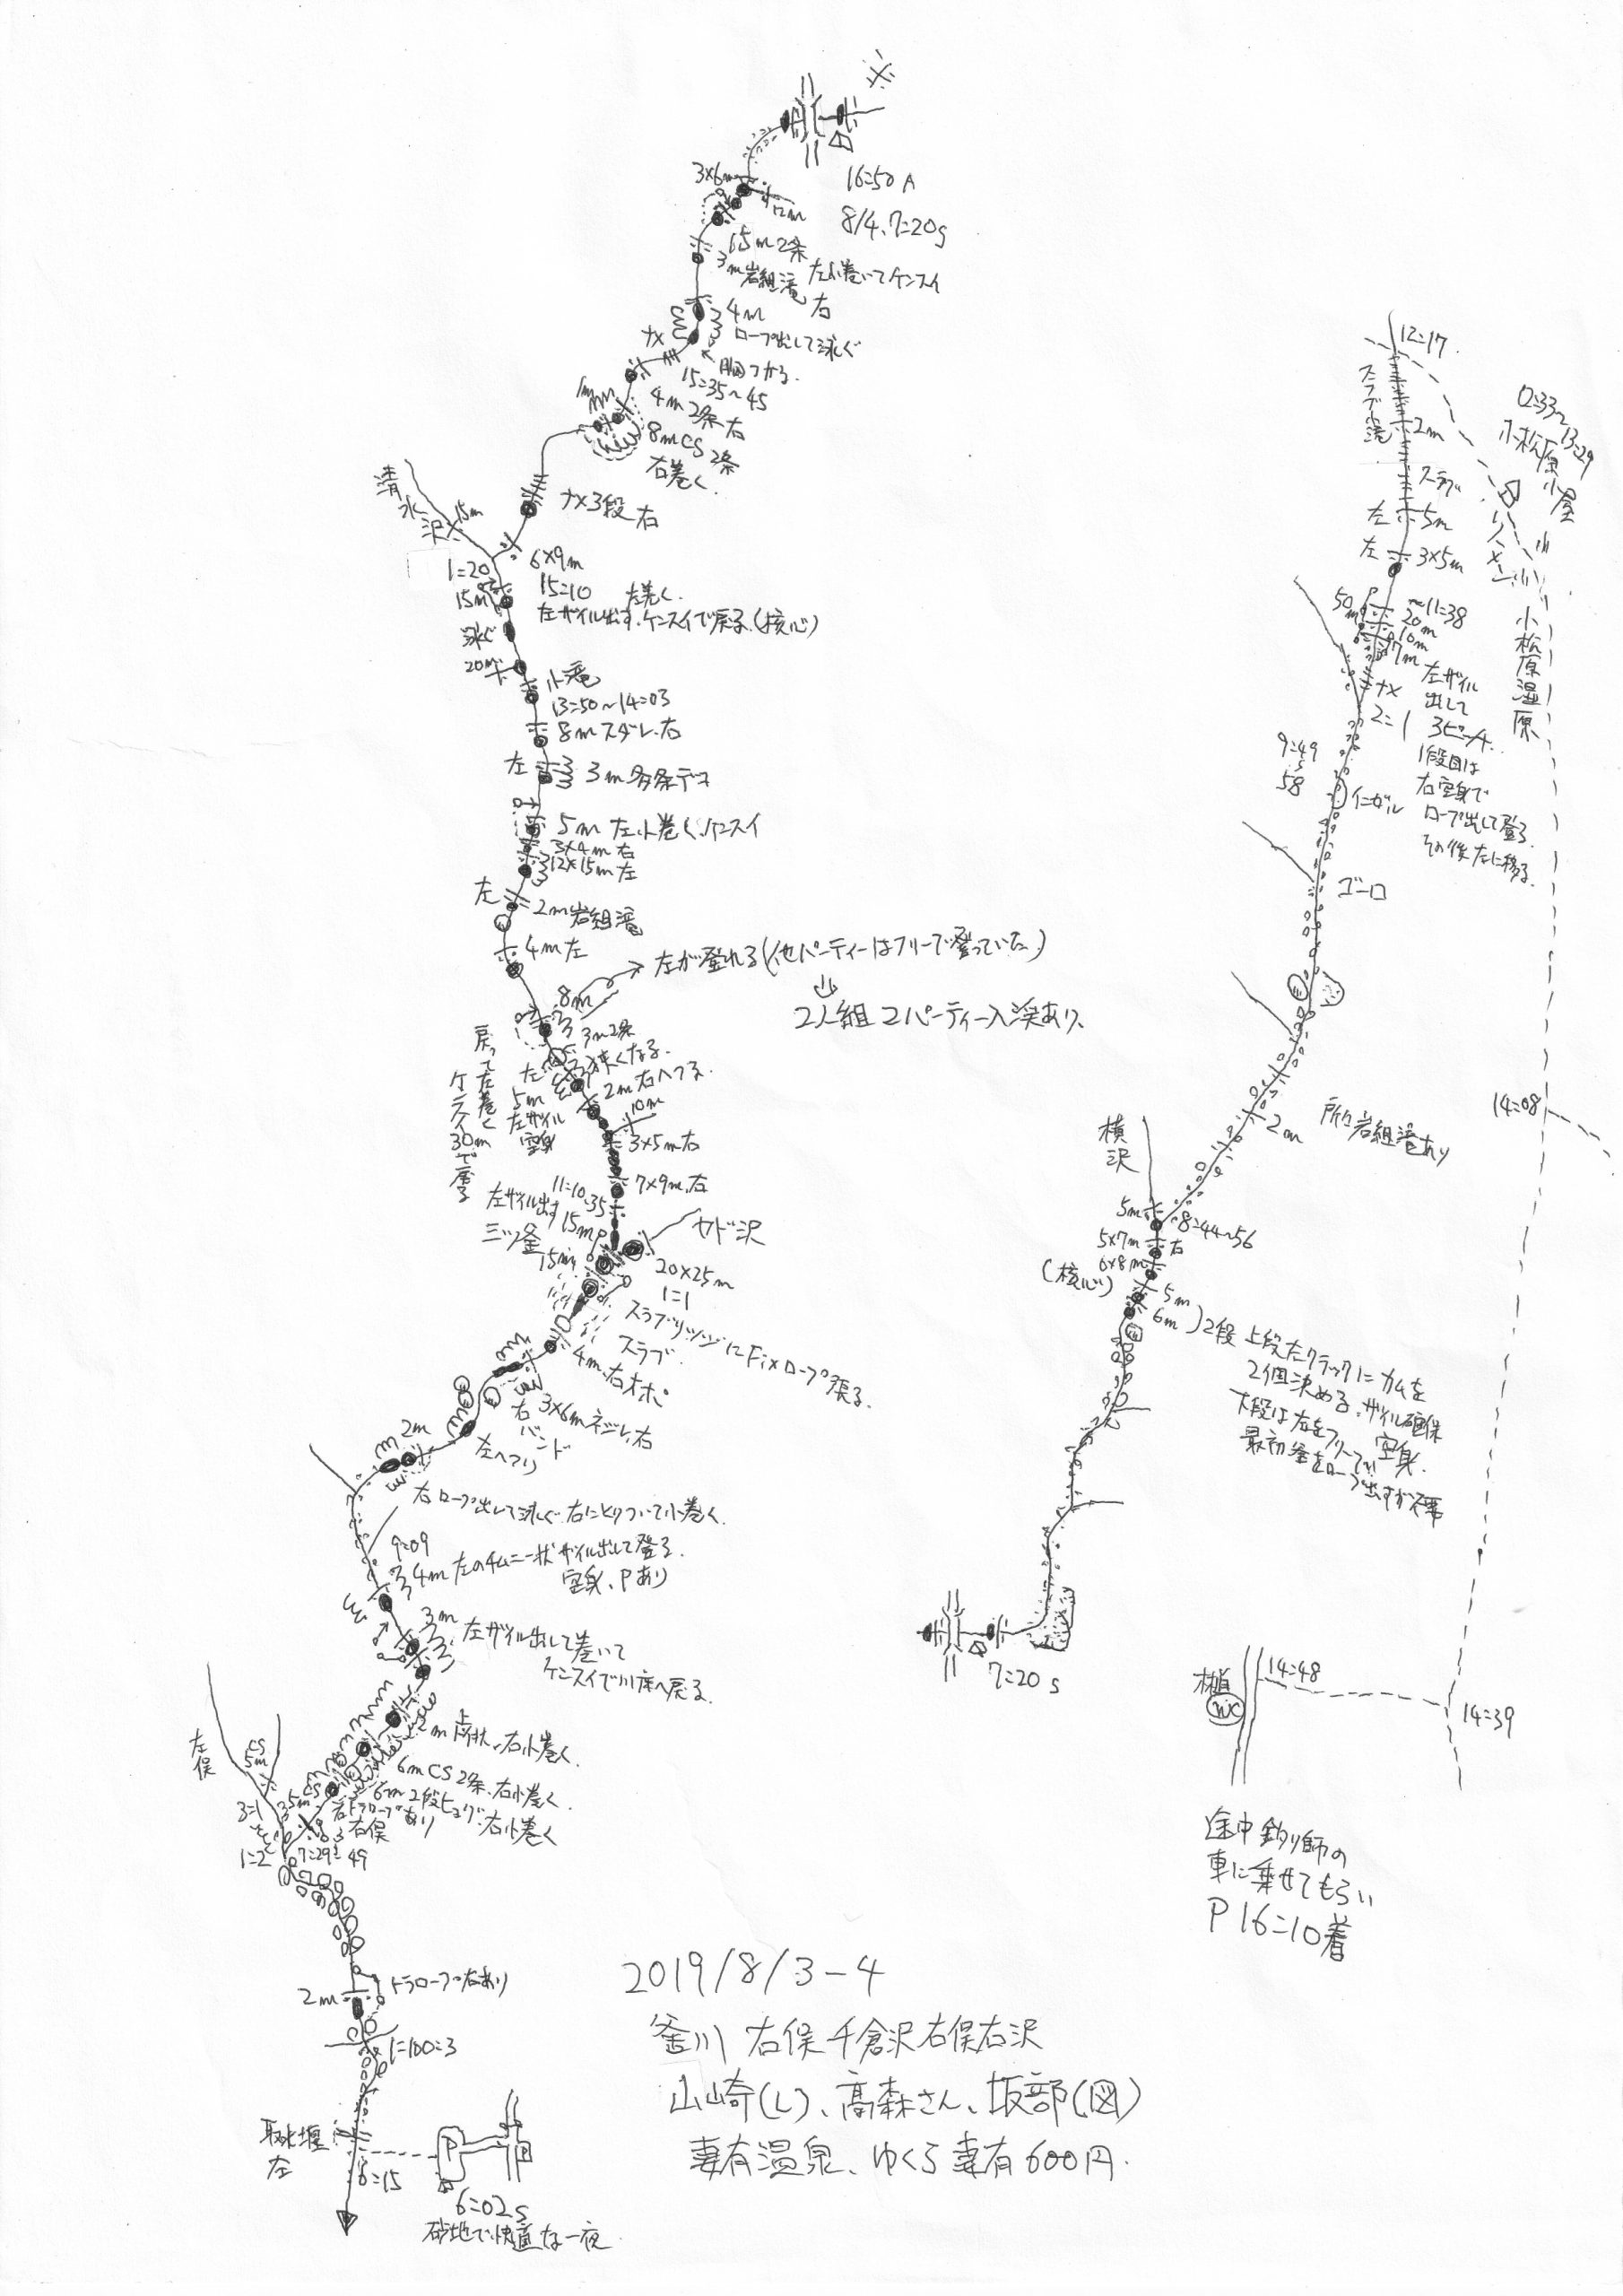 16=50 A
8/4、7=20s
3×6m
12m
15m2条
3m岩組滝 左小巻いてケンスイ
右
4m
ロープ出して泳ぐ
ナメ
胸つかる。
15=35~45
4m2条右
8mCS2条
右巻く。
ナメ3段右
清水沢
15m
6×9m
1=20
15=10 左巻く。
左ザイル出す、ケンスイで戻る(核心)
15m
泳ぐ
20m
小滝
13=50~14=03
8mスダレ、右
左
3m多条
5m 左小巻く、ケンスイ
3×4m右
12×15m左
左
2m岩組滝
4m左
左が登れる(他パーティーはフリーで登っていた。)
2人組2パーティー入渓あり、
8m
3m2条
狭くなる。
左
2m右ヘツる。
5m
左ザイル
空身
戻って左巻く
ケンスイ30mで戻る
10m
3×5m右
7×9m、右
11=10、35
左ザイル出す
15m
三ツ釜
15m
ヤド沢
20×25m
1=1
スラブリッジにFixロープ張る。
スラブ
4m、右
3×6mネジレ、右
右バンド
左ヘツリ
2m
右ロープ出して泳ぐ。右にとりついて小巻く。
9=09
4m左のチムニー状ザイル出して登る。
空身、Pあり
3m
左ザイル出して巻いて
ケンスイで川床へ戻る。
2m
右小巻く。
6mCS2条、右小巻く。
6m2段ヒョング、右小巻く
左俣
CS
5m
3=1
5m
CS
右トラロープあり
右俣
1=2
7=29~49
2m
トラロープ右あり
1=100=3
取水堰
左
6=15
P
6=02s
砂地で快適な一夜
12=17
スラブ滝
2m
スラブ
左
5m
左
3×5m
12=33~13=29
小松原小屋
小松原湿原
50m
~11=38
20m
10m
7m
ナメ
左ザイル
出して
3ピッチ。
2=1
1段目は
右空身で
ロープ出して登る。
その後左に移る。
9=49
~
58
ゴーロ
14=08
2m
所々岩組滝あり
横沢
5m
8=44~56
5×7m
右
6×8m
(核心)
5m
6m
2段 上段左クラックにカムを
2個決める。ザイル確保
下段は左をフリーで 空身。
最初釜をロープ出すが
7=20s
WC
14=48
14=39
途中釣り師の
車に乗せてもらい
P16=10着
2019/8/3-4
釜川 右俣千倉沢右俣右沢
山崎(L)、髙森さん、坂部(図)
妻有温泉、ゆくら妻有600円.